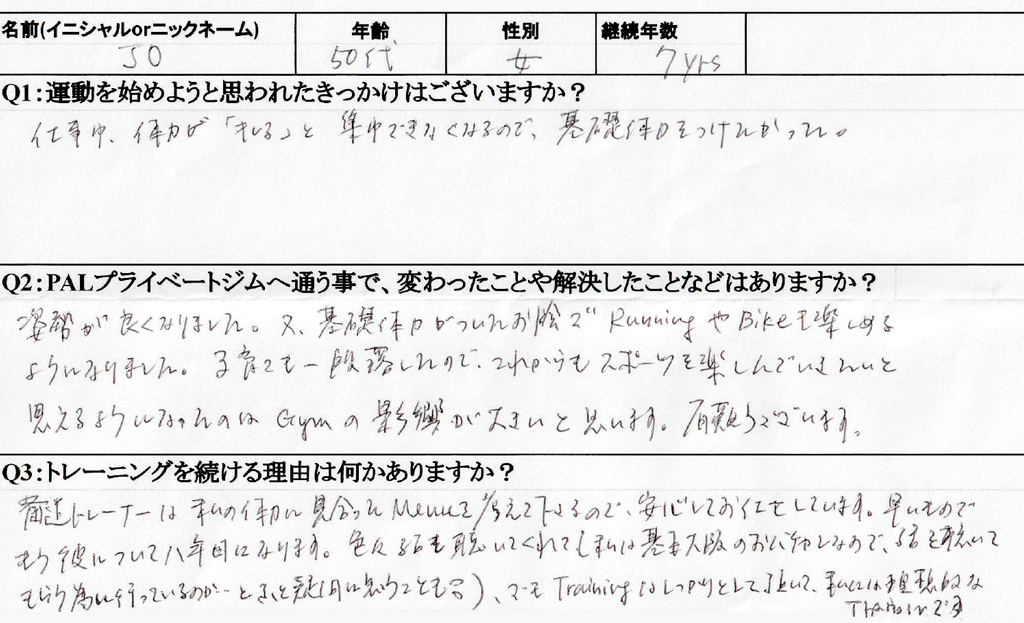 名前(イニシャルorニックネーム) 年齢 性別 継続年数
JO 50代 女 7yrs
Q1:運動を始めようと思われたきっかけはございますか？
仕事中、体力が「きれる」と 集中できなくなるので、基礎体力をつけたかった。
Q2:PALプライベートジムへ通う事で、変わったことや解決したことなどはありますか？
姿勢が良くなりました。又、基礎体力がついたお陰で RunningやBikeも楽しめる
ようになりました。子育ても一段落したので、これからもスポーツを楽しんでいきたいと
思えるようになったのは Gymの影響が大きいと思います。有難うございます。
Q3:トレーニングを続ける理由は何かありますか？
トレーナーは 私の体力に見合ったMenuを考えて下さるので、安心してお任せしています。早いもので
もう彼について八年目になります。色々話も聴いてくれて(私は基本大阪のおばちゃんなので、話を聴いて
もらう為に行っているのか…ときどき疑問に思うことも)、でも Trainingはしっかりとして頂いて、私には理想的な
Trainerです